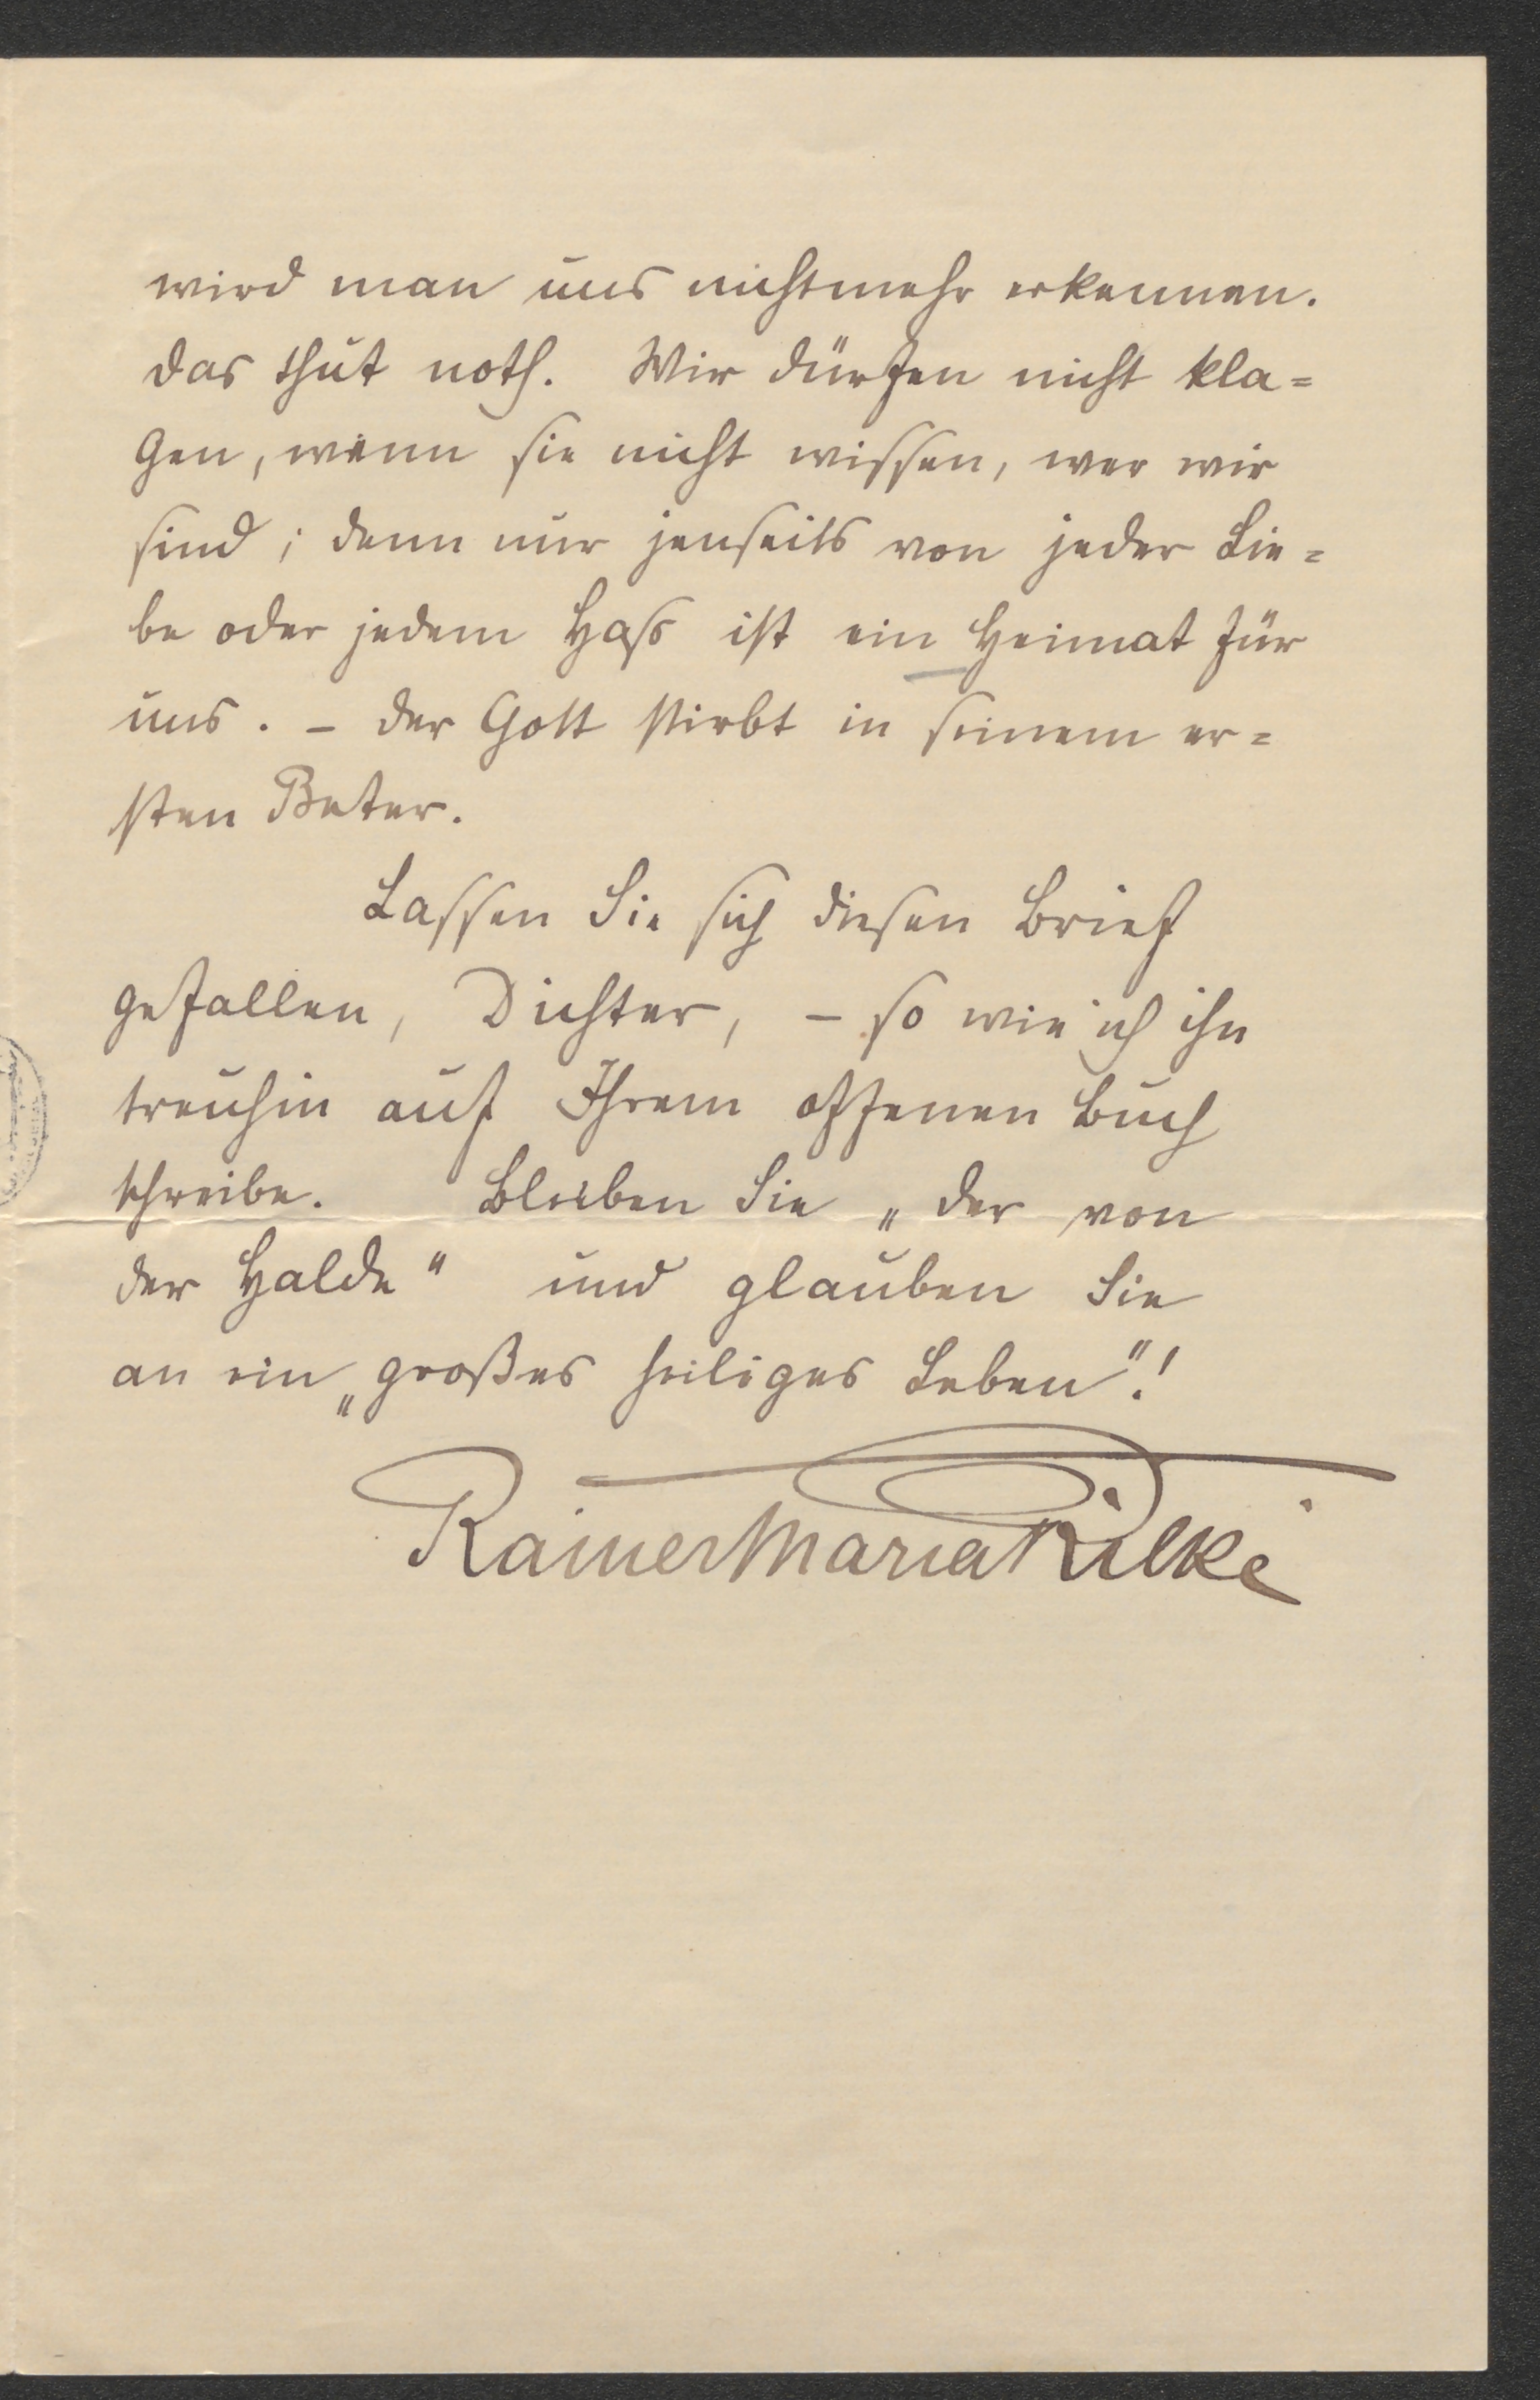 wird man uns nichtmehr erkennen.
Das thut noth. Wir dürfen nicht kla=
gen, wenn sie nicht wissen, wer wir
sind; denn nur jenseits von jeder Lie=
be oder jedem Hass ist ein Heimat für
uns. – Der Gott stirbt in seinem er=
sten Beter.
Lassen Sie sich diesen Brief
gefallen, Dichter, – so wie ich ihn
treuhin auf Ihrem offenen Buch
schreibe. Bleiben Sie „der von
der Halde" und glauben Sie
an ein „großes heiliges Leben".!
Rainer Maria Rilke